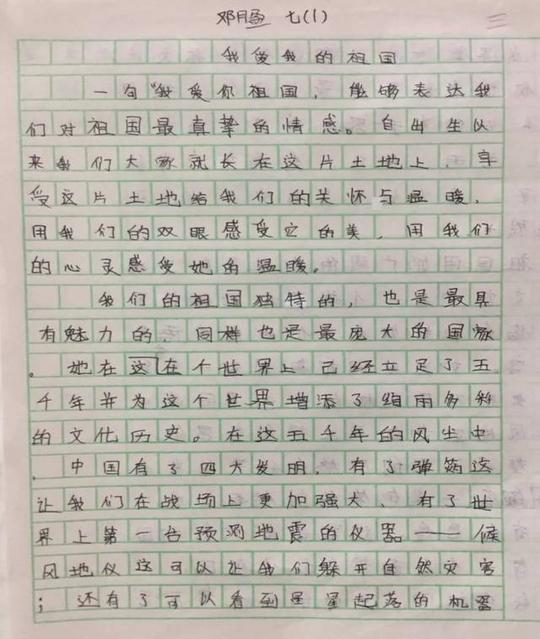 邓月 七(1)
三
我爱我的祖国
一句"我爱你祖国,能够表达我
们对祖国最真挚的情感。自出生以
来我们大家就长在这片土地上,享
受这片土地给我们的关怀与温暖,
用我们的双眼感受它的美,用我们
的心灵感受她的温暖。
我们的祖国独特的,也是最具
有魅力的,同样也是最庞大的国家
。她在这在个世界上已经立足了五
千年并为这个世界增添了绚丽多彩
的文化历史。在这五千年的风尘中
,中国有了四大发明,有了弹药这
让我们在战场上更加强大,有了世
界上第一台预测地震的仪器——候
风地仪这可以让我们躲开自然灾害
;还有了可以看到星星起落的机器